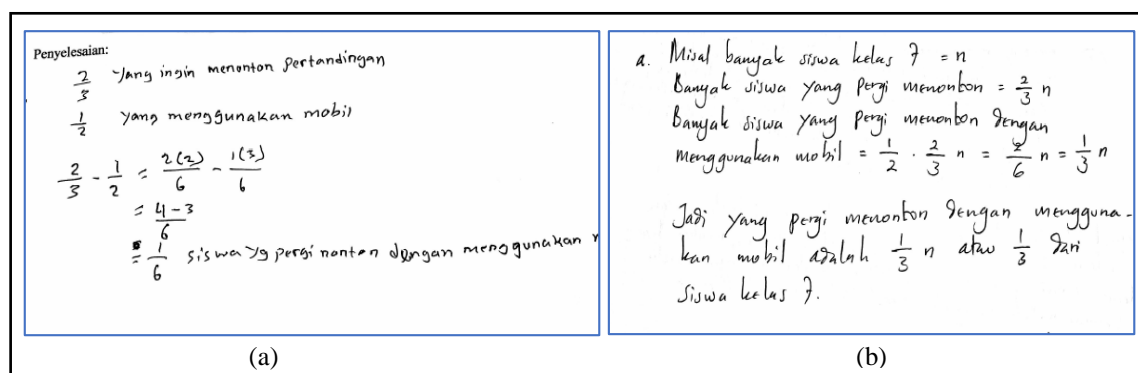 Penyelesaian:
2/3 yang ingin menonton pertandingan
1/2 yang menggunakan mobil
2/3 - 1/2 = 2(2)/6 - 1(3)/6
= 4-3/6
= 1/6 siswa yg pergi nonton dengan menggunakan
(a)
a. Misal banyak siswa kelas 7 = n
Banyak siswa yang pergi menonton = 2/3 n
Banyak siswa yang pergi menonton dengan
menggunakan mobil = 1/2 · 2/3 n = 2/6 n = 1/3 n
Jadi yang pergi menonton dengan mengguna-
kan mobil adalah 1/3 n atau 1/3 dari
siswa kelas 7.
(b)